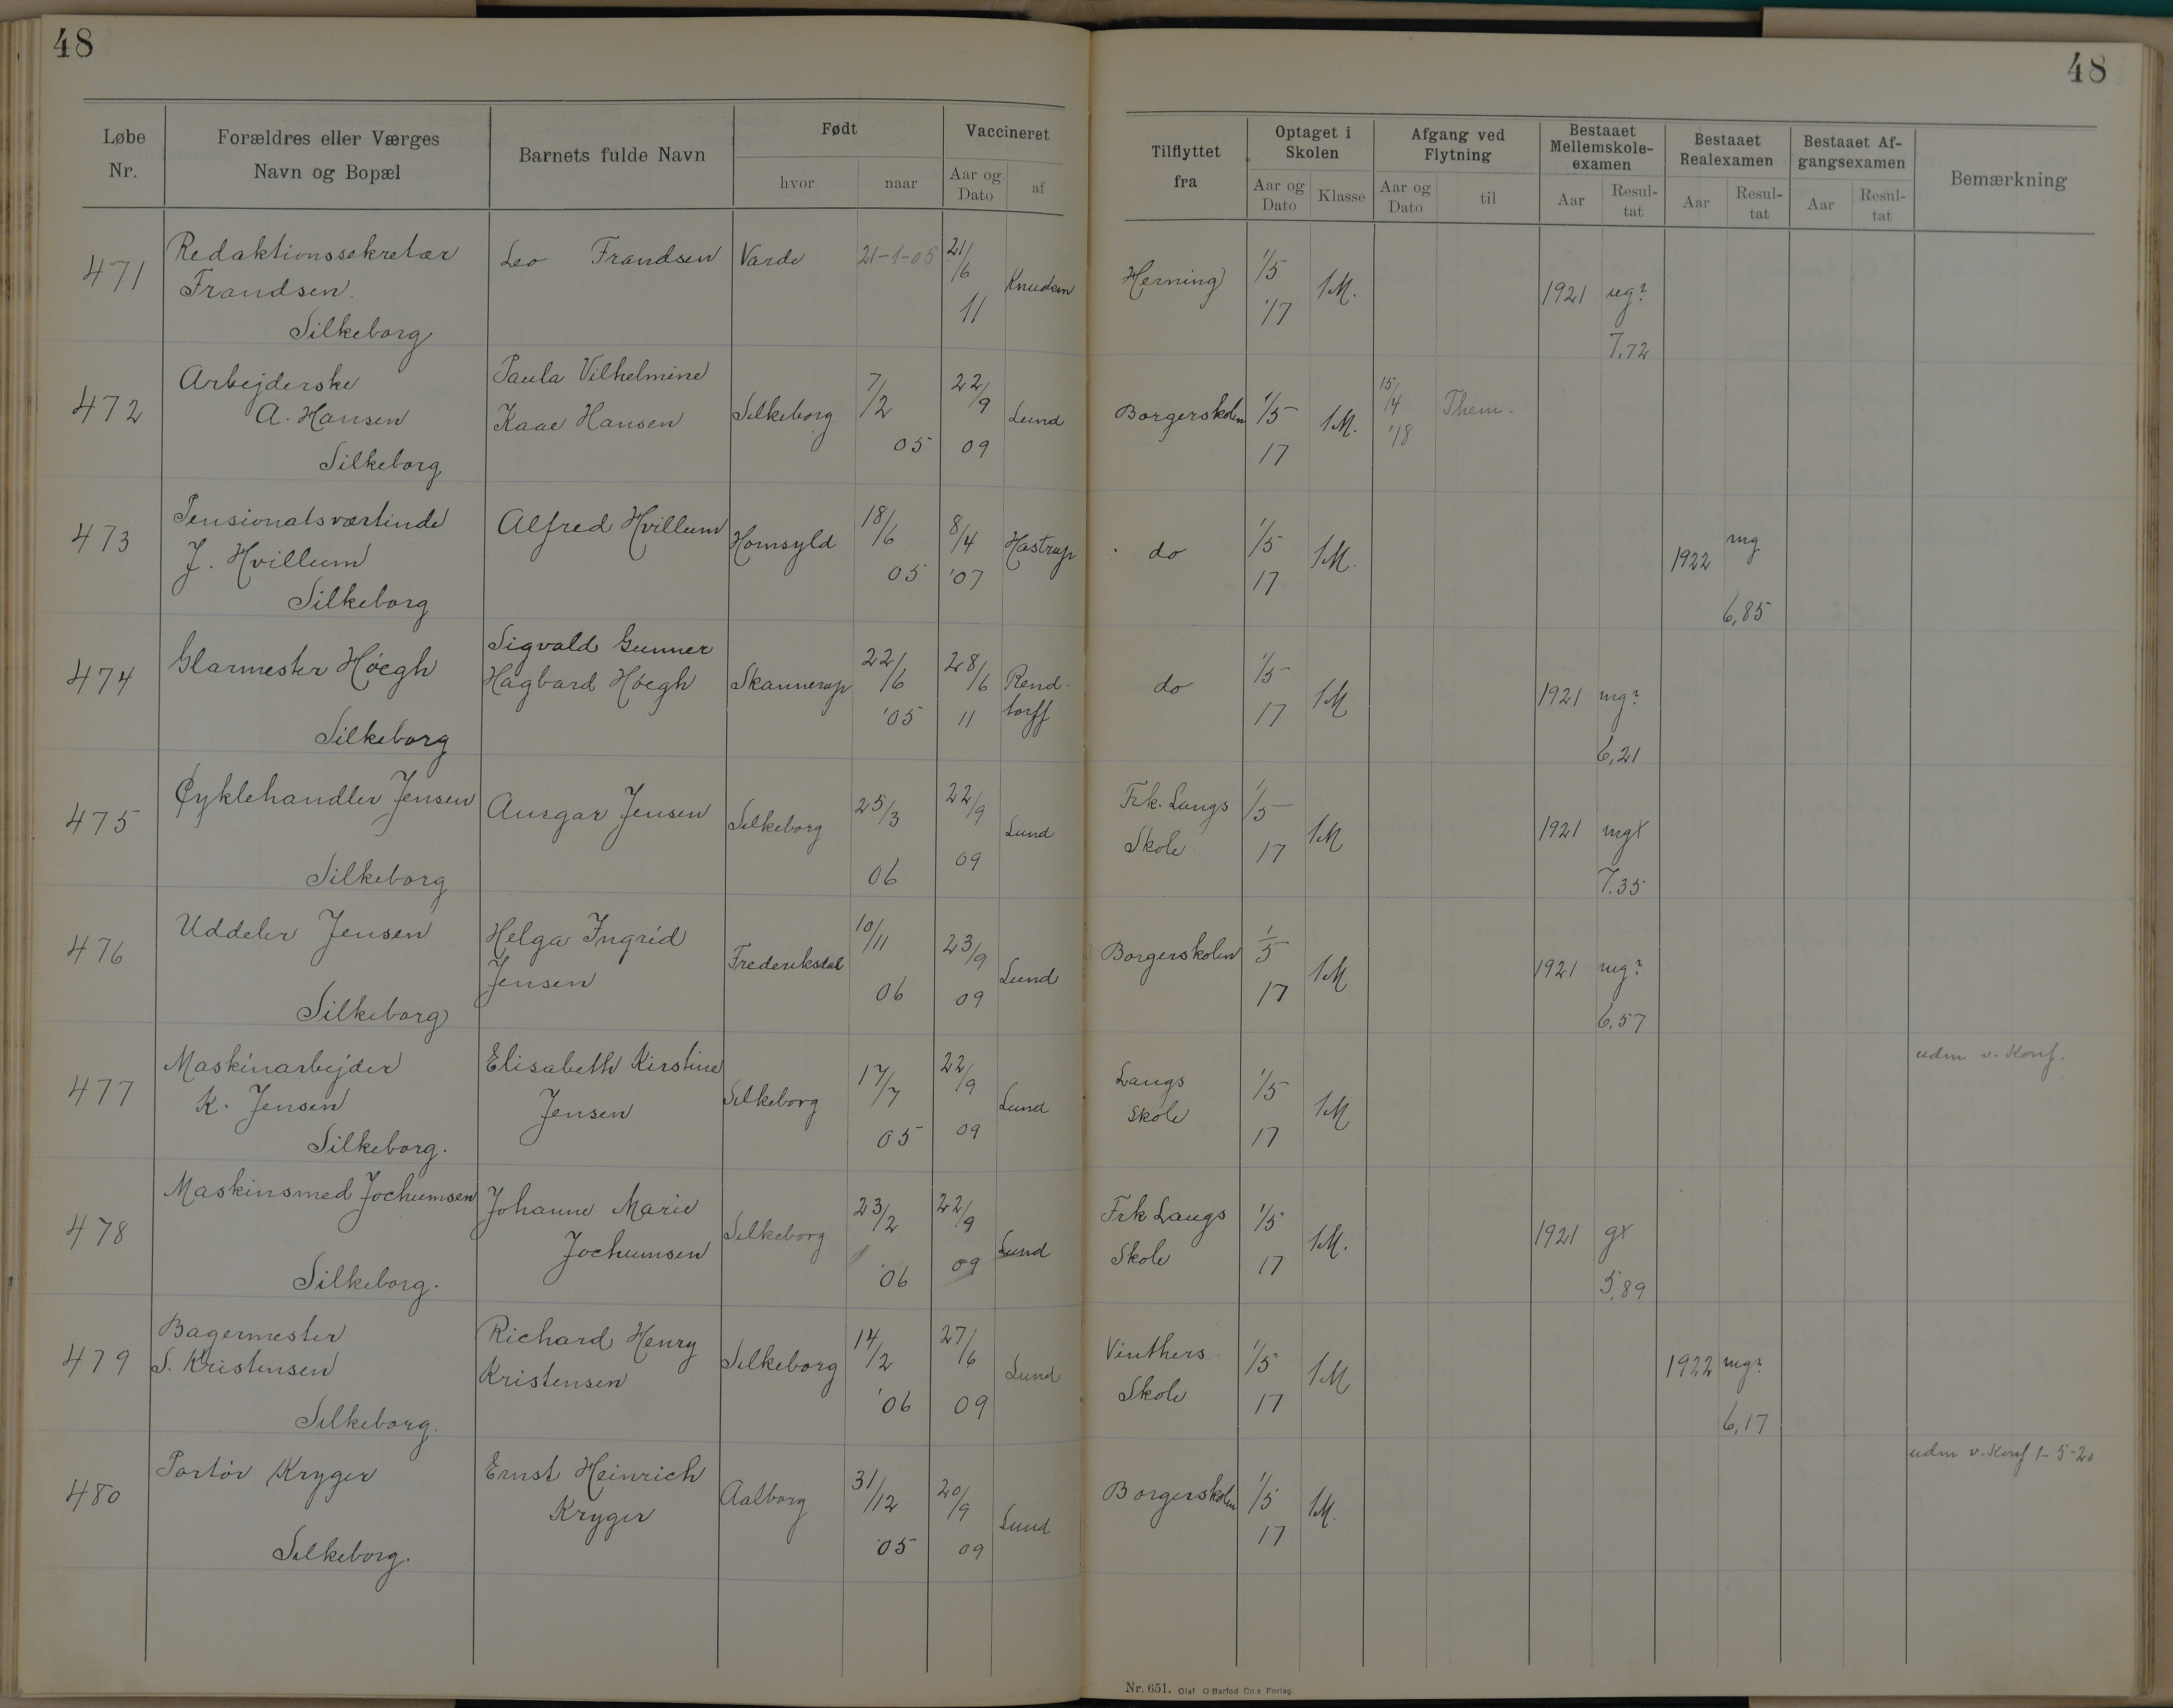 48
48
Løbe Nr.
Forældres eller Værges Navn og Bopæl
Barnets fulde Navn
Født
hvor
naar
Vaccineret
Aar og Dato
af
Tilflyttet fra
Optaget i Skolen
Aar og Dato
Klasse
Afgang ved Flytning
Aar og Dato
til
Bestaaet Mellemskole-examen
Aar
Resul-tat
Bestaaet Realexamen
Aar
Resul-tat
Bestaaet Af-gangsexamen
Aar
Resul-tat
Bemærkning
471 Redaktionssekretær Frandsen. Silkeborg Leo Frandsen Varde 21-1-05 21/6 11 Knudsen Herning 1/5 '17 1M. 1921 ug? 7,72
472 Arbejderske A. Hansen Silkeborg Paula Vilhelmine Kaae Hansen Silkeborg 7/2 05 22/9 09 Lund Borgerskolen 1/5 17 1M. 15/4 '18 Them.
473 Pensionatsværtinde J. Hvillum Silkeborg Alfred Hvillum Hornsyld 18/6 05 8/4 '07 Hastrup do 1/5 17 1M. 1922 mg 6,85
474 Glarmester Høegh Silkeborg Sigvald Gunner Hagbard Høegh Skannerup 22/6 '05 28/6 11 Rend-torff do 1/5 17 1M 1921 mg? 6,21
475 Cyklehandler Jensen Silkeborg Ansgar Jensen Silkeborg 25/3 06 22/9 09 Lund Frk. Langs Skole 1/5 17 1M 1921 mgx 7.35
476 Uddeler Jensen Silkeborg Helga Ingrid Jensen Frederiksdal 10/11 06 23/9 09 Lund Borgerskolen 1/5 17 1M 1921 mg? 6,57
477 Maskinarbejder K. Jensen Silkeborg. Elisabeth Kirstine Jensen Silkeborg 17/7 05 22/9 09 Lund Langs Skole 1/5 17 1M udm v. Konf.
478 Maskinsmed Jochumsen Silkeborg. Johanne Marie Jochumsen Silkeborg 23/2 '06 22/9 09 Lund Frk Langs Skole 1/5 17 1M. 1921 gx 5,89
479 Bagermester S. Kristensen Silkeborg. Richard Henry Kristensen Silkeborg 14/2 '06 27/6 09 Lund Vinthers Skole 1/5 17 1M 1922 mg? 6,17
480 Portør Kryger Silkeborg. Ernst Heinrich Kryger Aalborg 31/12 05 20/9 09 Lund Borgerskolen 1/5 17 1M. udm v. Konf 1-5-20
Nr. 651. Olaf O Barfod Co.s Forlag.